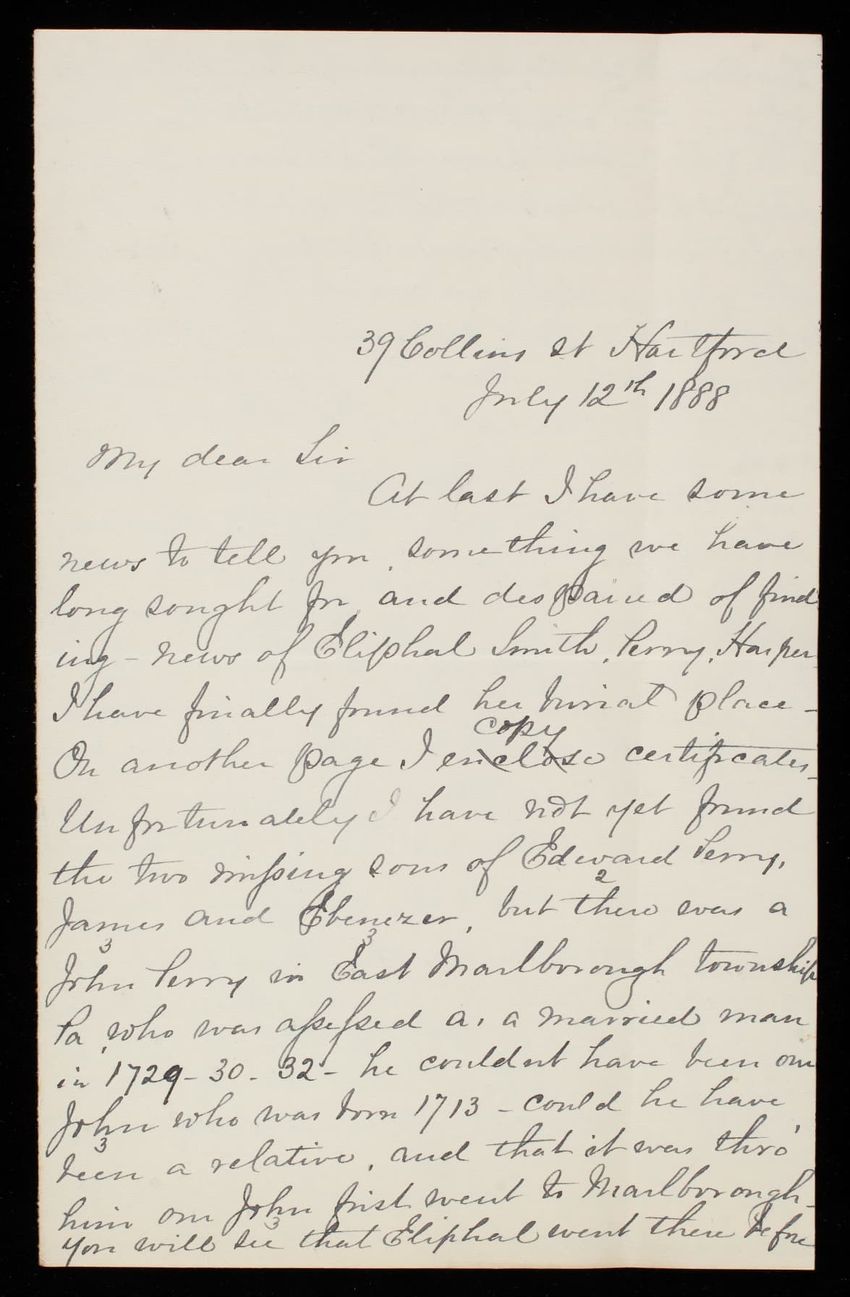 39 Collins st Hartford
July 12th 1888
My dear Sir
At last I have some
news to tell you, something we have
long sought for, and despaired of find
ing - news of Eliphal Smith, Perry, Harper.
I have finally found her burial place -
copy
On another page I enclose certificates.
Unfortunately I have not yet found
the two missing sons of Edward Perry,
2
James and Ebenezer, but there was a
3 3
John Perry in East Marlborough township
Pa, who was assessed as a married man
in 1729 - 30 - 32 - he couldnt have been our
John who was born 1713 - could he have
3
been a relative, and that it was thro'
him our John first went to Marlborough -
3
you will see that Eliphal went there before